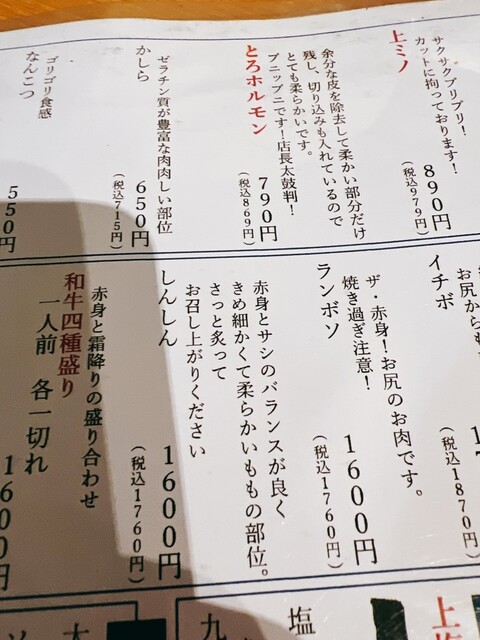 上ミノ
サクサクプリプリ！
カットに拘っております！
890円
（税込979円）
余分な皮を除去して柔かい部分だけ
残し、切り込みも入れているので
とても柔らかいです。
プニップニです！店長太鼓判！
とろホルモン
790円
（税込869円）
かしら
ゼラチン質が豊富な肉肉しい部位
650円
（税込715円）
なんこつ
ゴリゴリ食感
550円
イチボ
お尻から
（税込1870円）
ランボソ
ザ・赤身！お尻のお肉です。
焼き過ぎ注意！
1600円
（税込1760円）
しんしん
赤身とサシのバランスが良く
きめ細かくて柔らかいももの部位。
さっと炙って
お召し上がりください
1600円
（税込1760円）
和牛四種盛り
赤身と霜降りの盛り合わせ
一人前 各一切れ
1600円
上
塩
九
大